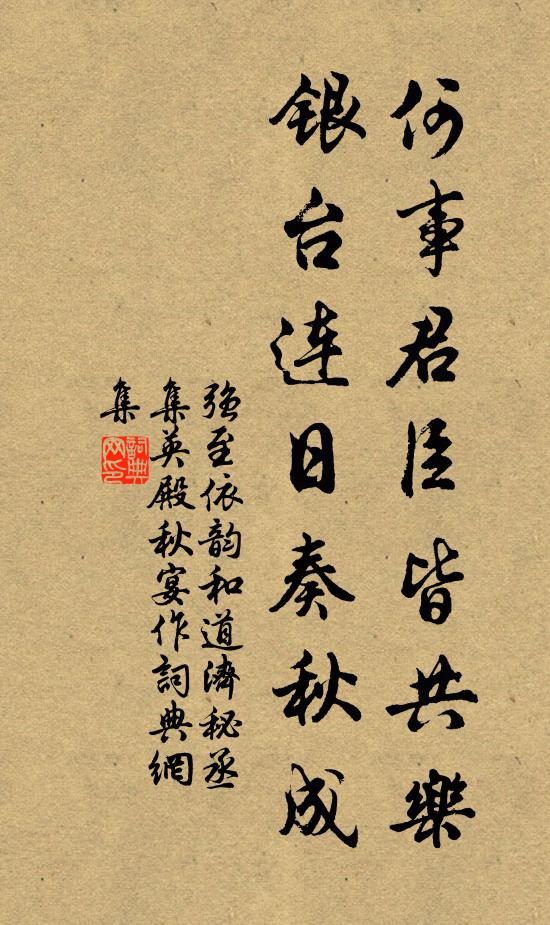 何事君臣皆共樂
銀台連日奏秋成
強至依韵和道濟秘丞
集英殿秋宴作詞典網
集
詞典網印